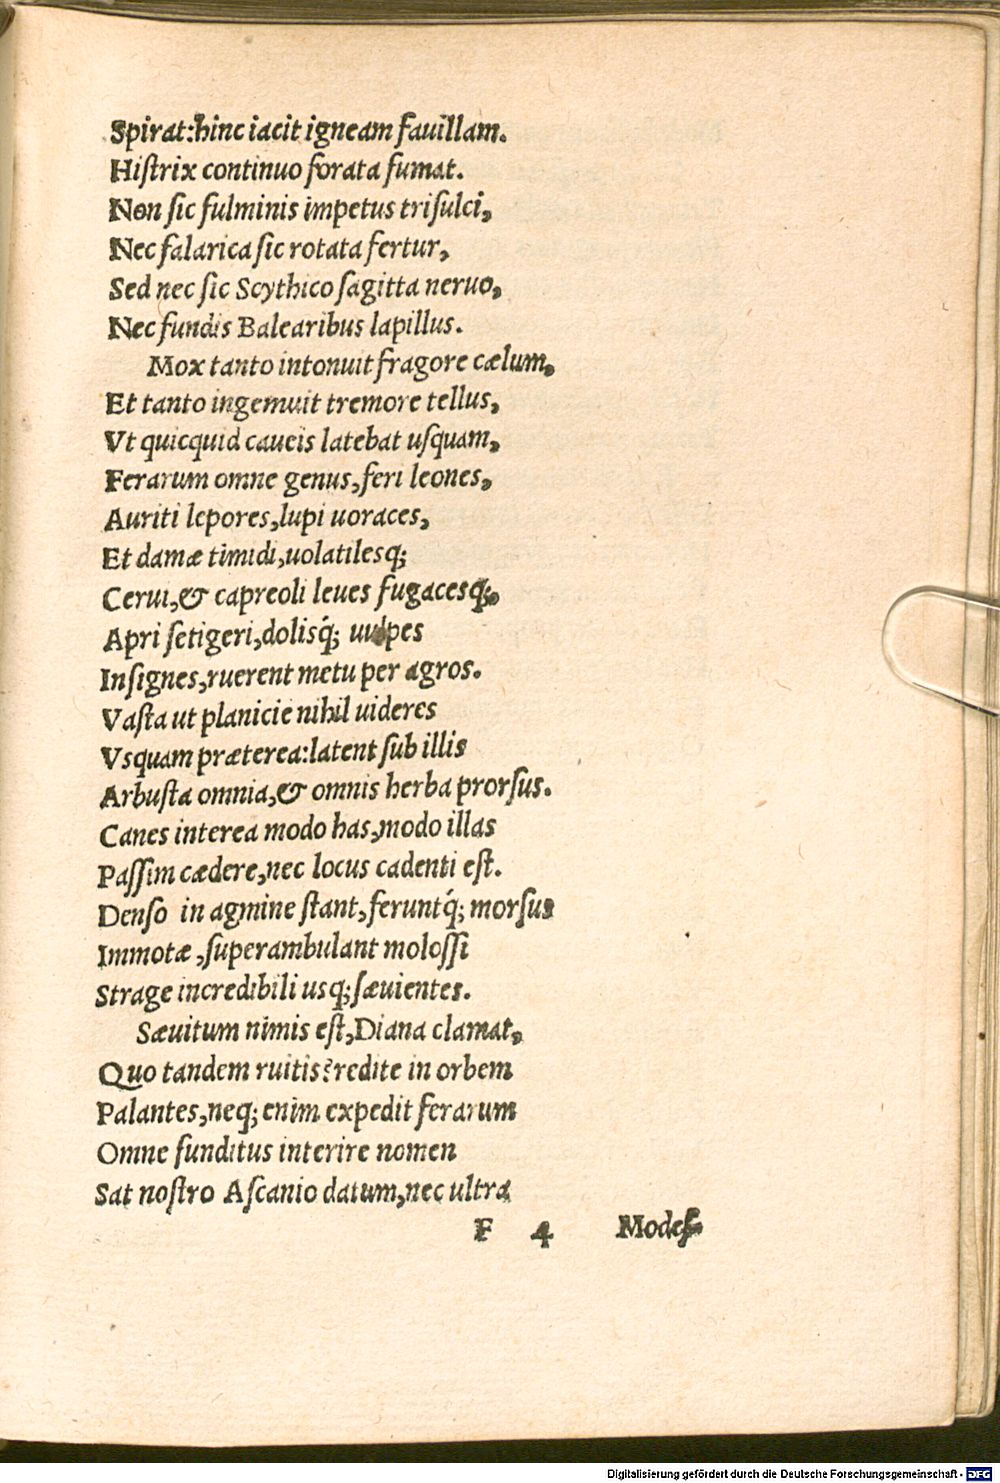 Spirat:hinc iacit igneam fauillam.
Hiſtrix continuo forata fumat.
Non ſic fulminis impetus triſulci,
Nec falarica ſic rotata fertur,
Sed nec ſic Scythico ſagitta neruo,
Nec fundis Balearibus lapillus.
Mox tanto intonuit fragore cælum,
Et tanto ingemuit tremore tellus,
Vt quicquid caueis latebat uſquam,
Ferarum omne genus,feri leones,
Auriti lepores,lupi uoraces,
Et damæ timidi,uolatilesq;
Cerui,& capreoli leues fugacesq;,
Apri ſetigeri,dolisq́; uulpes
Inſignes,ruerent metu per agros.
Vaſta ut planicie nihil uideres
Vsquam præterea:latent ſub illis
Arbuſta omnia,& omnis herba prorſus.
Canes interea modo has,modo illas
Paſſim cædere,nec locus cadenti eſt.
Denſo in agmine ſtant,feruntq́; morſus
Immotæ ,ſuperambulant moloſſi
Strage incredibili usq;ſæuientes.
Sæuitum nimis eſt,Diana clamat,
Quo tandem ruitis?redite in orbem
Palantes,neq; enim expedit ferarum
Omne funditus interire nomen
Sat noſtro Aſcanio datum,nec ultra
F 4 Modeſ
Digitalisierung gefördert durch die Deutsche Forschungsgemeinschaft - DFG